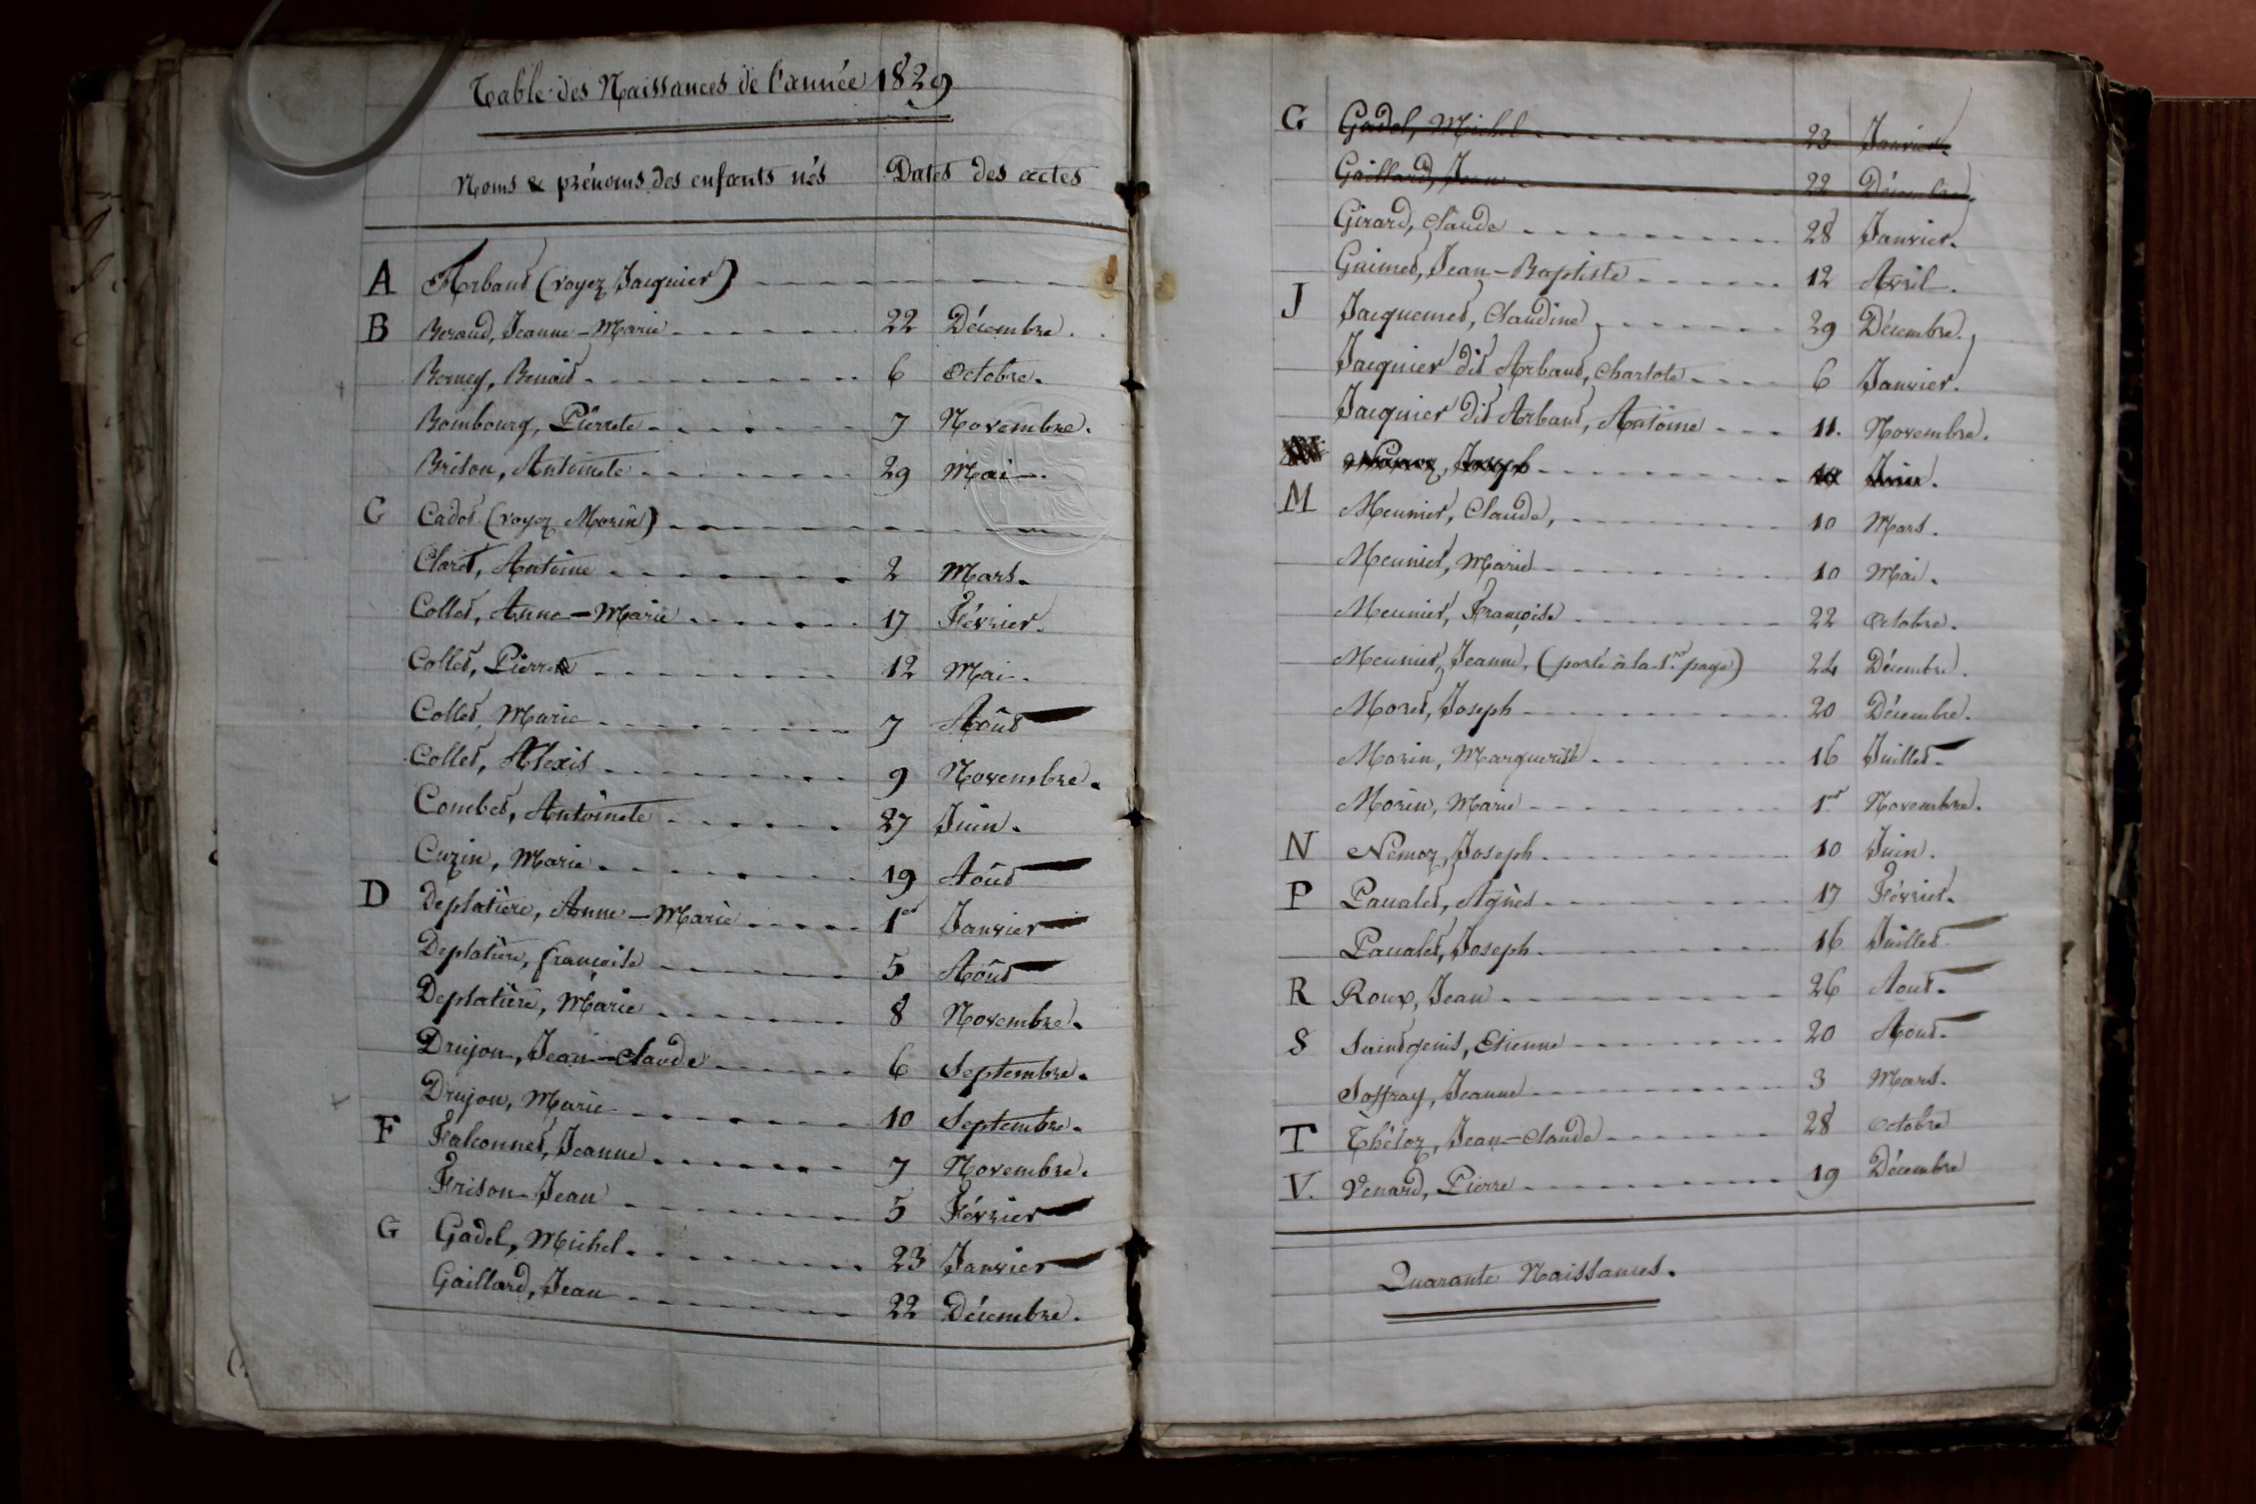 Table des Naissances de l'année 1829
Noms & prénoms des enfants nés Dates des actes
A Arbaud (voyez Jacquier)
B Beraud, Jeanne-Marie 22 Décembre.
Borney, Benoit 6 Octobre.
Bombourg, Pierrete 7 Novembre.
Briton, Antoinete 29 Mai.
C Cadot (voyez Morin)
Claret, Antoine 2 Mars.
Collet, Anne-Marie 17 Février.
Collet, Pierre 12 Mai.
Collet, Marie 7 Août
Collet, Alexis 9 Novembre.
Combet, Antoinete 27 Juin.
Cuzin, Marie 19 Août
D Deplatière, Anne-Marie 1er Janvier
Deplatière, françoise 5 Août
Deplatière, Marie 8 Novembre.
Drujon, Jean-Claude 6 Septembre.
Drujon, Marie 10 Septembre.
F Falconnet, Jeanne 7 Novembre.
Frison Jean 5 Février
G Gadel, Michel 23 Janvier
Gaillard, Jean 22 Décembre.
G Gadel, Michel 23 Janvier.
Gaillard, Jean 22 Décembre.
Girard, Claude 28 Janvier.
Guimet, Jean-Baptiste 12 Avril.
J Jacquemet, Claudine 29 Décembre.
Jacquier dit Arbaud, Charlote 6 Janvier.
Jacquier dit Arbaud, Antoine 11. Novembre.
Nemoz, Joseph 10 Juin.
M Meunier, Claude, 10 Mars.
Meunier, Marie 10 Mai.
Meunier, Françoise 22 Octobre.
Meunier, Jeanne, (porté à la 1re page) 24 Décembre.
Moret, Joseph 20 Décembre.
Morin, Marguerite 16 Juillet.
Morin, Marie 1er Novembre.
N Nemoz, Joseph 10 Juin.
P Paualet, Agnès 17 Février.
Paualet, Joseph 16 Juillet
R Roux, Jean 26 Aout.
S Saintgenis, Etienne 20 Aout.
Soffray, Jeanne 3 Mars.
T Théloz, Jean-Claude 28 Octobre
V. Venard, Pierre 19 Décembre
Quarante Naissances.